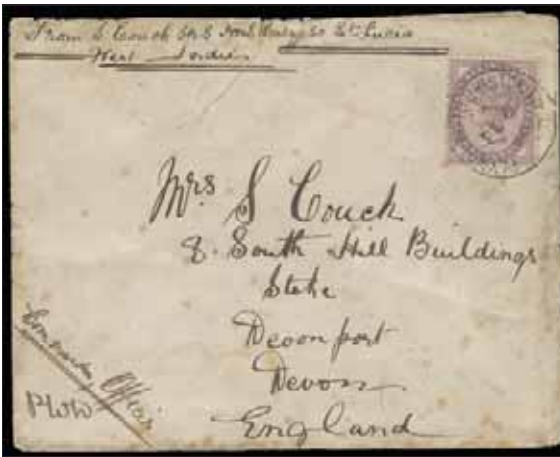 From S Couch St Lucia
West Indies
Mrs S Couch
8. South Hill Buildings
Stoke
Devonport
Devon
England
Officer